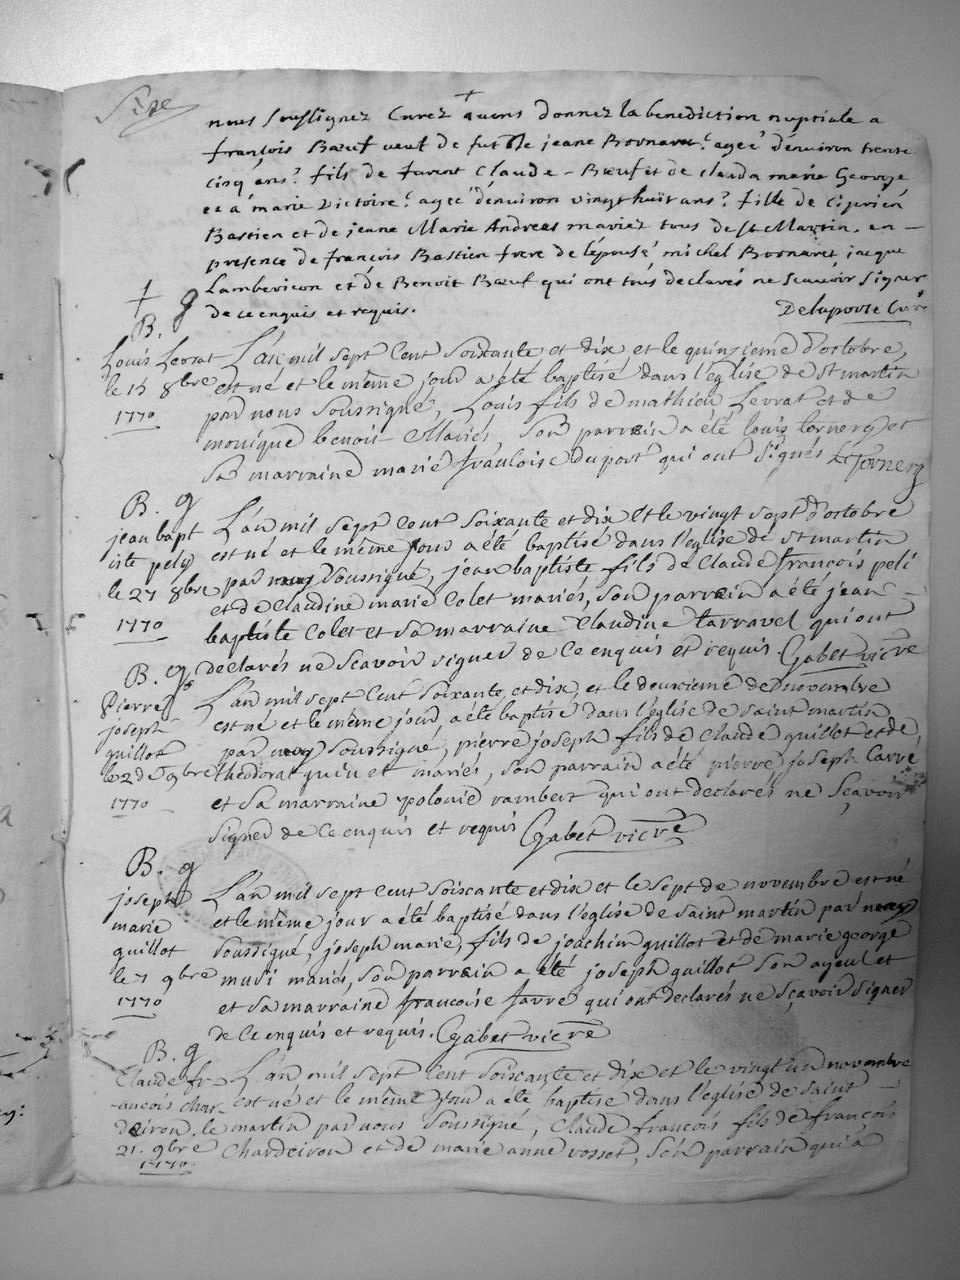 nous soussignez Curez avons donnez la benediction nuptiale a
françois Bœuf veuf de fut jeane Bornaret agéé dénuiron trente
cinq ans fils de furent Claude Bœuf et de clauda marie George
et a marie victoire agéé dénuiron vingt huit ans fille de Ciprien
Bastien et de jeane Marie Andreas mariez tous de st Martin, en
presence de françois Bastien frere de lépousé michel Bornaret, jacque
Lambericon et de Benoit Bœuf qui ont tous declarés ne scavoir signer
de ce enquis et requis. Delaporte Curé
B. g
Louis Levrat
le 15 8bre
1770
L'an mil sept cent soixante et dix et le quinzieme d'octobre,
est né et le même jour a été baptisé dans l'eglise de st martin
par nous soussigné, Louis fils de mathieu Levrat et de
monique benoit Mariés, son parrain a été louis tornery et
sa marraine marie françoise duport qui ont signés L Tornery
B. g
jean bapt
iste pely
le 27 8bre
1770
L'an mil sept cent soixante et dix et le vingt sept d'octobre
est né et le même jour a été baptisé dans l'eglise de st martin
par nous soussigné, jean baptiste fils de Claude françois peli
et de Claudine marie Colet mariés, son parrain a été jean
baptiste Colet et sa marraine Claudine tarravel qui ont
declarés ne scavoir signer de ce enquis et requis. Gabet vicre
B. g
Pierre
joseph
guillot
le 2 d 9bre
1770
L'an mil sept cent soixante et dix, et le deuxieme de novembre
est né et le même jour, a été baptisé dans l'eglise de saint martin
par nous soussigné, pierre joseph fils de Claude guillot et de
theodorat mariés, son parrain a été pierre joseph Carré
et sa marraine polonie rambert qui ont declarés ne sçavoir
signer de ce enquis et requis Gabet vicre
B. g
joseph
marie
guillot
le 7 9bre
1770
L'an mil sept cent soixante et dix et le sept de novembre est né
et le même jour a été baptisé dans l'eglise de saint martin par nous
soussigné, joseph marie, fils de joachin guillot et de marie george
musi mariés, son parrain a été joseph guillot son ayeul et
et sa marraine francoise favre qui ont declarés ne sçavoir signer
de ce enquis et requis. Gabet vicre
B. g
Claude fr
ancois char
deiron. le
21. 9bre
1770
L'an mil sept cent soixante et dix et le vingt un novembre
est né et le même jour a été baptisé dans l'eglise de saint
martin par nous soussigné, Claude françois fils de françois
Chardeiron et de marie anne rosset, son parrain qui a